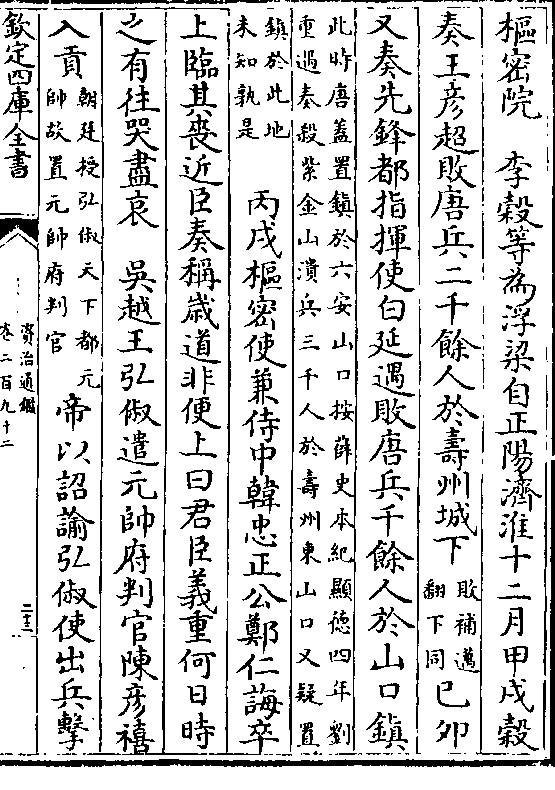 樞密院　李榖等為浮梁自正陽濟淮十二月甲戌榖
奏王彦超敗唐兵二千餘人於壽州城下敗補邁翻下同己夘
又奏先鋒都指揮使白延遇敗唐兵千餘人於山口鎮
此時唐蓋置鎮於六安山口按薛史本紀顯徳四年劉
重遇奏殺紫金山潰兵三千人於壽州東山口又疑置
鎮於此地
未知孰是
丙戌樞密使兼侍中韓忠正公鄭仁誨卒
上臨其喪近臣奏稱歳道非便上曰君臣義重何日時
之有往哭盡哀　吳越王弘俶遣元帥府判官陳彦禧
入貢朝廷授弘俶天下都元帥故置元帥府判官帝以詔諭弘俶使出兵擊
欽定四庫全書
資治通鑑
卷二百九十二
二十三